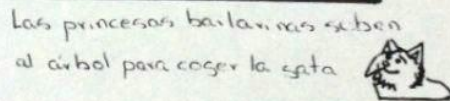 Las princesas bailarinas suben
al árbol para coger la gata